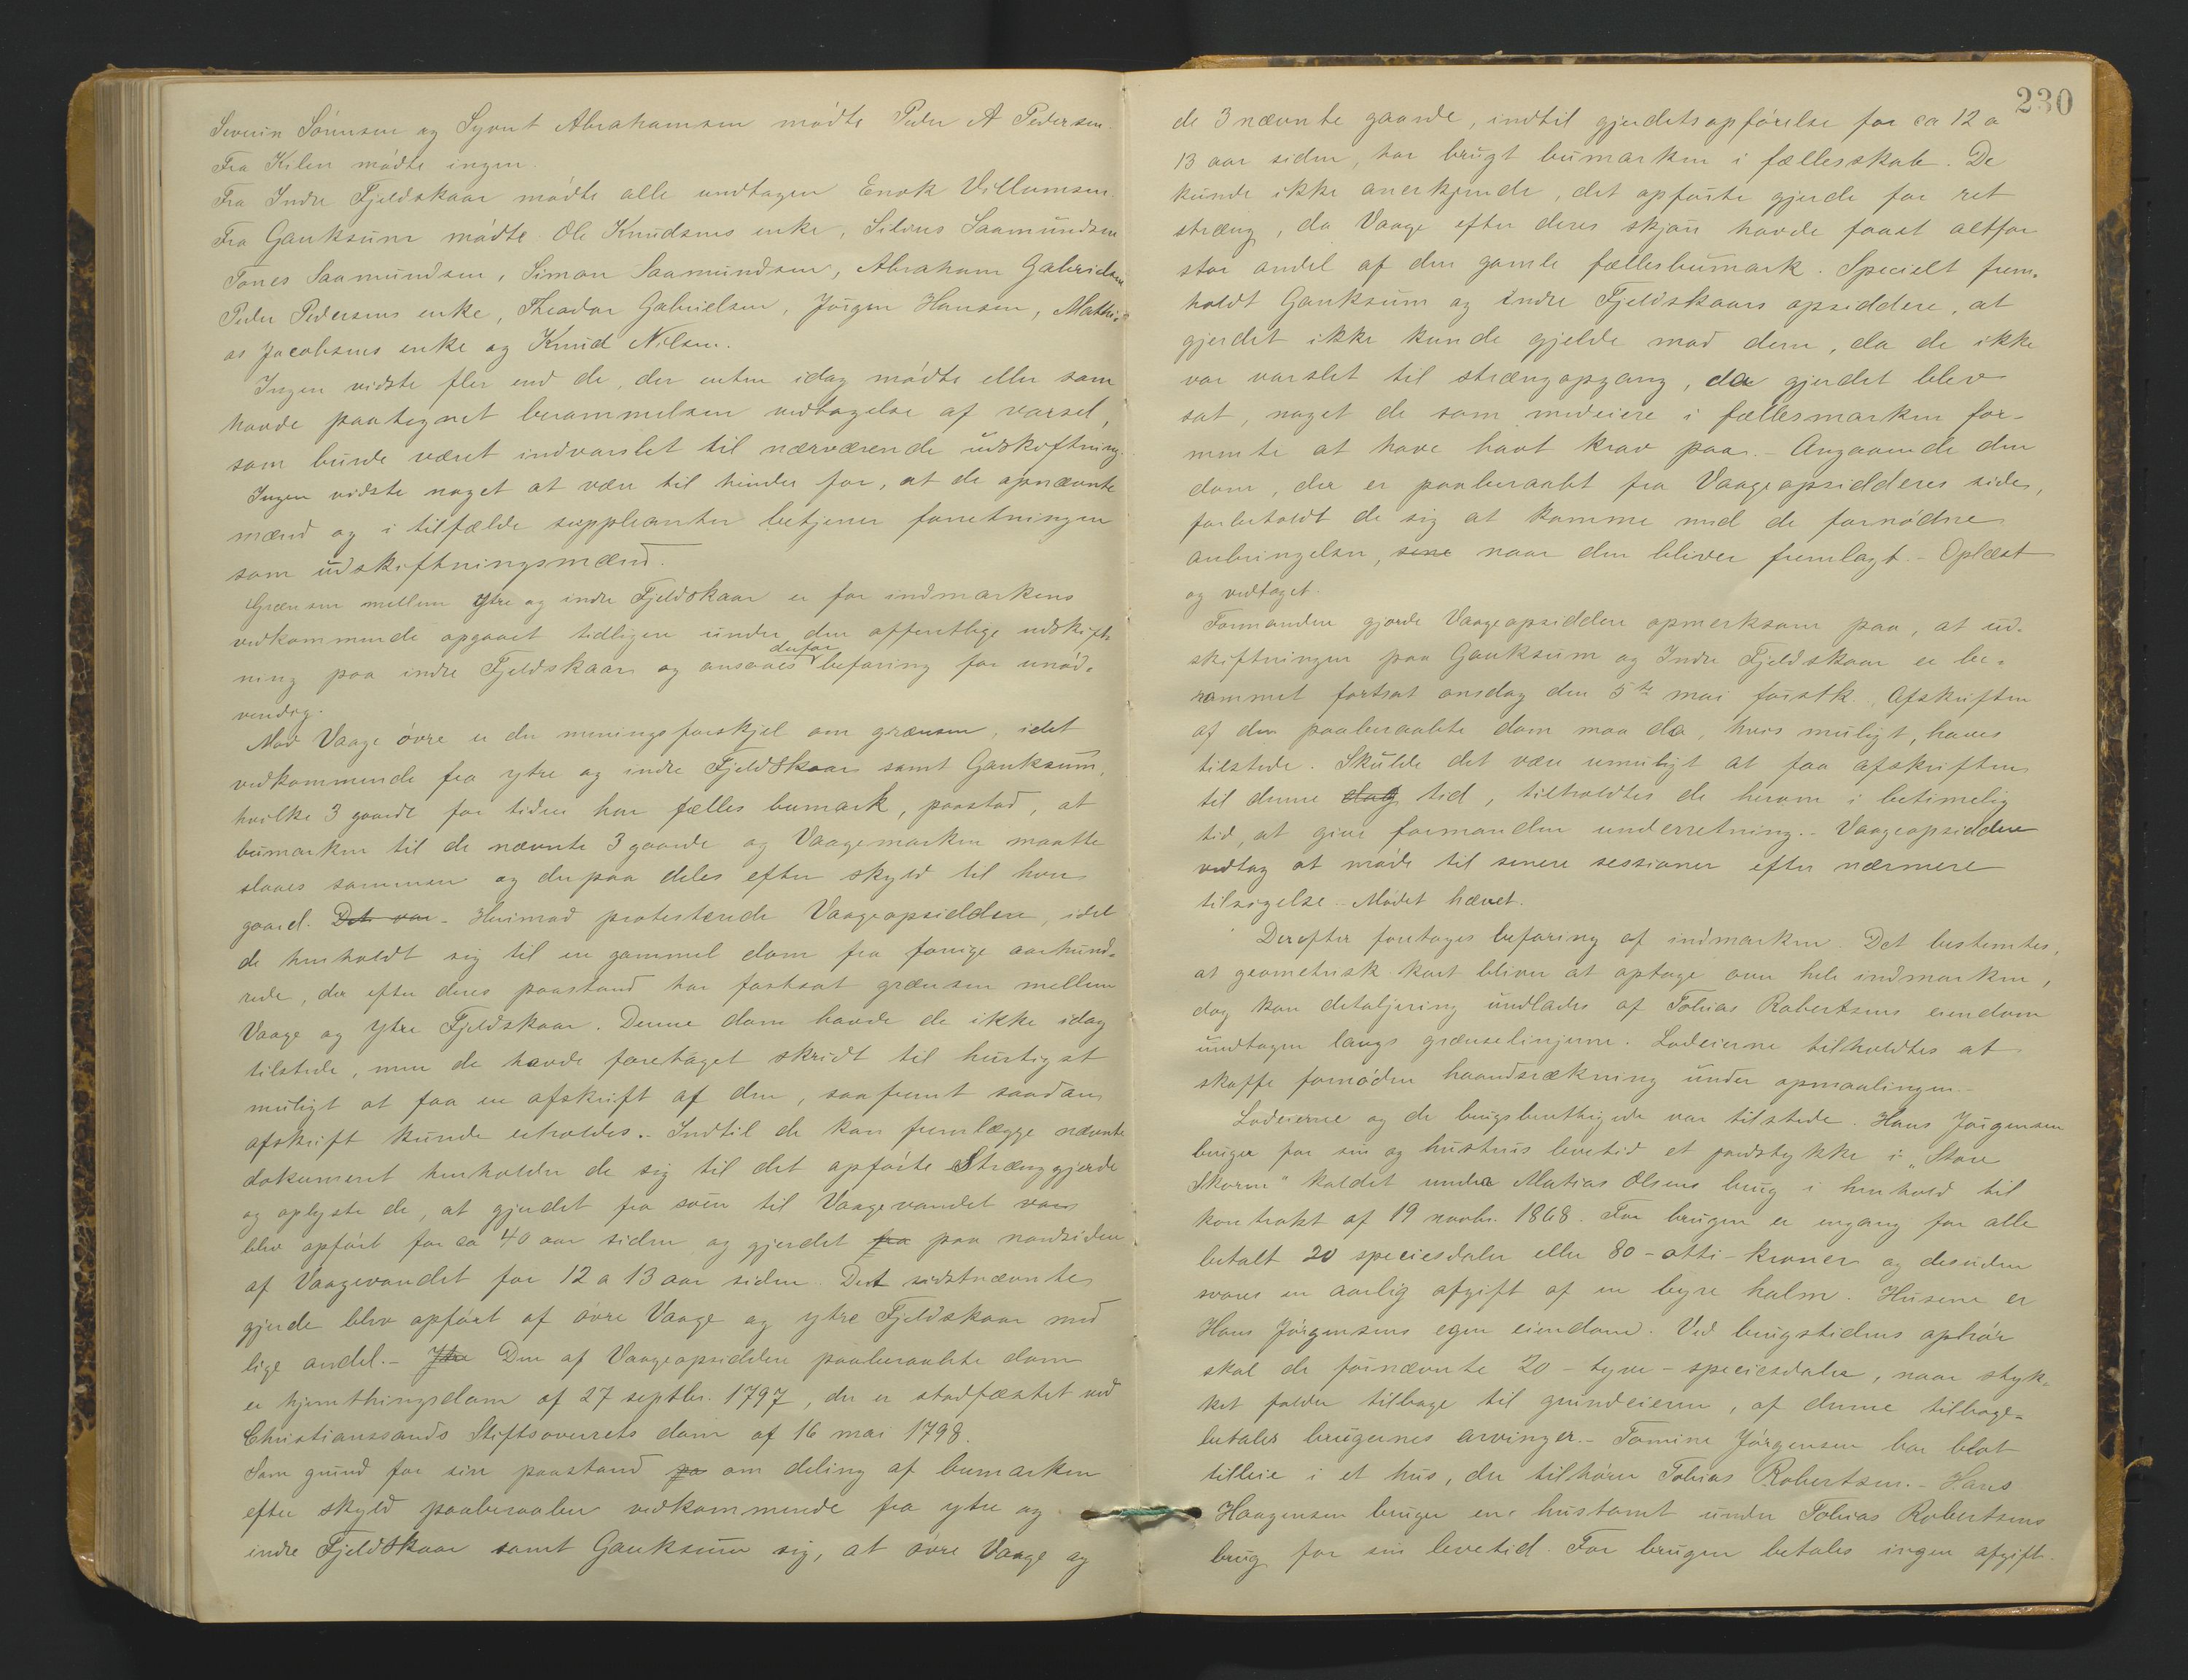 Severin Sörensen og Syvert Abrahamsen mödte Peder A Pedersen.
Fra Kilen mödte ingen.
Fra Indre Fjeldskaar mödte alle undtagen Enok Villumsen.
Fra Gauksum mödte Ole Knudsens enke, Silius Saamundsen
Tönes Saamundsen, Simon Saamundsen, Abraham Gabrielsen
Peder Pedersens enke, Theodor Gabrielsen, Jörgen Hansen, Mathi-
as Jacobsens enke og Knud Nilsen.
Ingen vidste fler end de, der enten idag mödte eller som
havde paategnet berammelsen vedtagelse af varsel,
som burde været indvarslet til nærværende udskiftning.
Ingen vidste noget at være til hinder for, at de opnævnte
mænd og i tilfælde suppleanter betjener forretningen
som udskiftningsmænd.
Grænsen mellem ytre og indre Fjeldskaar er for indmarkens
vedkommende opgaaet tidligere under den offentlige udskift-
ning paa indre Fjeldskaar og ansaaes derfor befaring for unöd-
vendig.
Mod Vaage övre er der meningsforskjel om grænsen, idet
vedkommende fra ytre og indre Fjeldskaar samt Gauksum,
hvilke 3 gaarde for tiden har fælles bumark, paastod, at
bumarken til de nævnte 3 gaarde og Vaagemarken maatte
slaaes sammen og derpaa deles efter skyld til hver
gaard. Det var - Herimod protesterede Vaageopsiddere, idet
de henholdt sig til en gammel dom fra forrige aarhund-
rede, der efter deres paastand har fastsat grænsen mellem
Vaage og Ytre Fjeldskaar. Denne dom havde de ikke idag
tilstede, men de havde foretaget skridt til hurtigst
muligt at faa en afskrift af den, saafremt saadan
afskrift kunde erholdes. - Indtil de kan fremlægge nævnte
dokument henholder de sig til det opförte strænggjerde
og oplyste de, at gjerdet fra söen til Vaagevandet var
blev opfört for ca 40 aar siden og gjerdet fra paa nordsiden
af Vaagevandet for 12 a 13 aar siden. Det sidstnævnte
gjerde blev opfört af övre Vaage og ytre Fjeldskaar med
lige andel. - Ytre Den af Vaageopsiddere paaberaabte dom
er hjemthingsdom af 27 septbr. 1797, der er stadfæstet ved
Christianssands Stiftsoverrets dom af 16 mai 1798.
Som grund for sin paastand pa om deling af bumarken
efter skyld paaberaaber vedkommende fra ytre og
indre Fjeldskaar samt Gauksum sig, at övre Vaage og
230
de 3 nævnte gaarde, indtil gjerdets opförelse for ca 12 a
13 aar siden, har brugt bumarken i fællesskab. De
kunde ikke anerkjende, det opförte gjerde for ret
stræng, da Vaage efter deres skjön havde faaet altfor
stor andel af den gamle fællesbumark. Specielt frem-
holdt Gauksum og indre Fjeldskaars opsiddere, at
gjerdet ikke kunde gjelde mod dem, da de ikke
var varslet til strængopgang, da gjerdet blev
sat, noget de som medeiere i fællesmarken for-
mente at have havt krav paa. - Angaaende den
dom, der er paaberaabt fra Vaageopsidderes side,
forbeholdt de sig at komme med de fornödne
anbringelser, sene naar den bliver fremlagt. - Oplæst
og vedtaget.
Formanden gjorde Vaageopsiddere opmerksom paa, at ud-
skiftningen paa Gauksum og Indre Fjeldskaar er be-
rammet fortsat onsdag den 5te mai förstk. Afskriften
af den paaberaabte dom maa da, hvis muligt, haves
tilstede. Skulde det være umuligt at faa afskriften
til denne dag tid, tilholdtes de herom i betimelig
tid, at give formanden underretning. - Vaageopsiddere
vedtog at möde til senere sessioner efter nærmere
tilsigelse. - Mödet hævet.
Derefter foretages befaring af indmarken. Det bestemtes,
at geometrisk kart bliver at optage over hele indmarken,
dog kan detaljering undlades af Tobias Robertsens eiendom
undtagen langs grænselinjerne. Lodeierne tilholdtes at
skaffe fornöden haandsrækning under opmaalingen. -
Lodeierne og de brugsberettigede var tilstede. Hans Jörgensen
bruger for sin og hustrus levetid et jordstykke i "Store
Skorve" kaldet under Matias Olsens brug i henhold til
kontrakt af 19 novbr. 1868. For brugen er engang for alle
betalt 20 speciesdaler eller 80 - otti - kroner og desuden
svares en aarlig afgift af en byre halm. Husene er
Hans Jörgensens egen eiendom. Ved brugstidens ophör
skal de förnævnte 20 - tyve - speciesdaler, naar styk-
ket falder tilbage til grundeieren, af denne tilbage-
betales brugernes arvinger. - Tomine Jörgensen har blot
tilleie i et hus, der tilhörer Tobias Robertsen. - Hans
Haagensen bruger en hustomt under Tobias Robertsens
brug for sin levetid. For brugen betales ingen afgift.